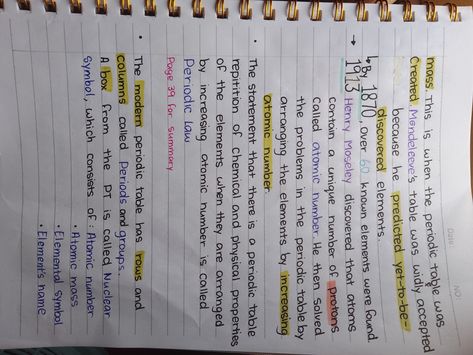 Date:
No:
mass. This is when the periodic table was
created. Mendeleeve's table was wildly accepted
because he predicted yet-to-be-
discovered elements.
↳ By 1870 Over 60 known elements were found
→ 1913 Henry Moseley discovered that atoms
contain a unique number of protons
called atomic number. He then solved
the problems in the periodic table by
arranging the elements by increasing
atomic number.
• The statement that there is a periodic table
repitition of chemical and physical properties
of the elements when they are arranged
by increasing atomic number is called
Periodic Law
Page 39 for summary
• The modern periodic table has rows and
columns called Periods and groups.
A box from the PT is called Nuclear
symbol, which consists of: • Atomic number
• Atomic mass
• Elemental symbol
• Element's name